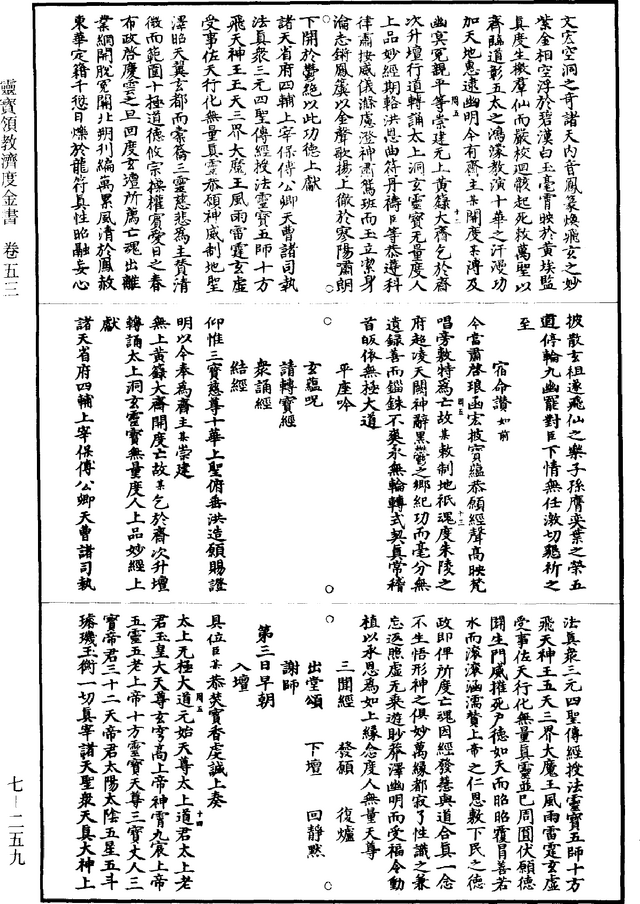 文宏空洞之奇諸天內音鳳篆煥飛玄之妙
紫金相空浮於碧漢白玉毫霄映於黃埃監
真度生檄羣仙而嚴校迴骸起死敕萬聖以
齎臨道彰五太之鴻濛教演十華之汗漫功
加天地惠逮幽明今有齋主某開度某溥及
幽冥冤親平等崇建元上黃籙大齋乞於齋
次升壇行道轉誦太上洞玄靈寶无量度人
上品妙經期輅洪恩曲符丹禱臣等恭遵科
律肅按威儀滌慮澄神肅駕班而玉立潔身
瀹志鏘鳳簾以金聲歌揚上徹於寥陽嘯朗
下開於欝絕以此功德上獻
諸天省府四輔上宰保傅公卿天曹諸司執
法真衆三元四聖傳經授法靈寶五師十方
飛天神王五天三界大魔王風雨雷霆玄虛
受事佐天行化無量真靈恭願神威制地聖
澤昭天翼玄都而棄裔三靈慈悲為主贊清
微而範圍十極道德攸宗操權寶愛日之春
布政啓度雲之旦回度玄壇所薦亡魂出離
業網開脫冤關北朔刊編萬累風清於鳳赦
東華定籍千愆日爍於龍符真性昭融妄心
披散玄祖遂飛仙之樂子孫膺奕葉之榮五
道停輪九幽罷對臣下情無任激切懇祈之
至
宿命讚如前
今當肅啓琅函宏披寶蘊恭願經聲高映梵
唱旁敷特為亡故某敕制地祇還度朱陵之
府超凌天關神辭黑欝之鄉紀功而毫分無
遺錄善而錙銖不爽永無輪轉式契真常稽
首皈依無極大道
平座吟
玄蘊呪
請轉寶經
衆誦經
結經
仰惟三寶慈尊十華上聖俯垂洪造願賜證
明以今奉為齋主某崇建
無上黃籙大齋開度亡故某乞於齋次升壇
轉誦太上洞玄靈寶無量度人上品妙經上
獻
諸天省府四輔上宰保傅公卿天曹諸司執
法真衆三元四聖傳經授法靈寶五師十方
飛天神王五天三界大魔王風雨雷霆玄虛
受事佐天行化無量真靈並已周圓伏願德
開生門威摧死戶德如天而昭昭覆冐善若
水而滚滚涵濡贊上帝之仁恩敷下民之德
政即俾所度亡魂因經發慧與道合真一念
不生悟形神之俱妙萬緣都寂了性識之兼
忘返照虛无乘遊眇莽澤幽明而受福令動
植以承恩為如上緣念度人無量天尊
三聞經 發願 復爐
出堂頌 下壇 回靜默
謝師
第三日早朝
入壇
具位臣某恭焚寶香虔誠上奏
太上无極大道元始天尊太上道君太上老
君玉皇大天尊玄穹高上帝神霄九宸上帝
五靈五老上帝十方靈寶天尊三寶丈人三
寶帝君三十二天帝君太陽太陰五星五斗
璿璣玉衡一切真宰諸天聖衆天真大神上
靈寶領教濟度金書 卷五三
七－二五九